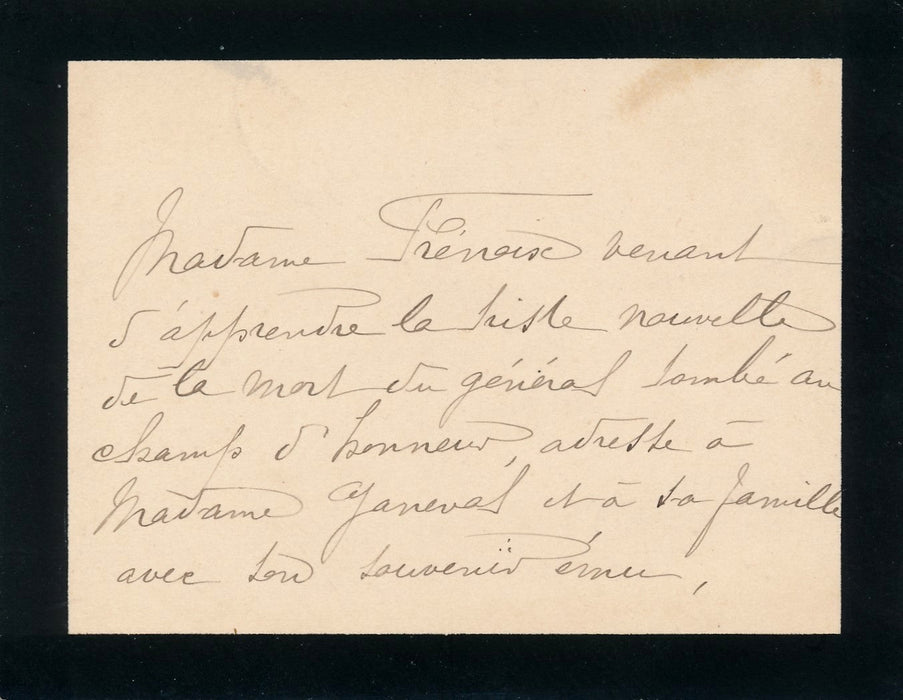 Madame Trénoix venant
d'apprendre la triste nouvelle
de la mort du général tombé au
champ d'honneur, adresse à
Madame Ganeval et à sa famille
avec son souvenir ému,